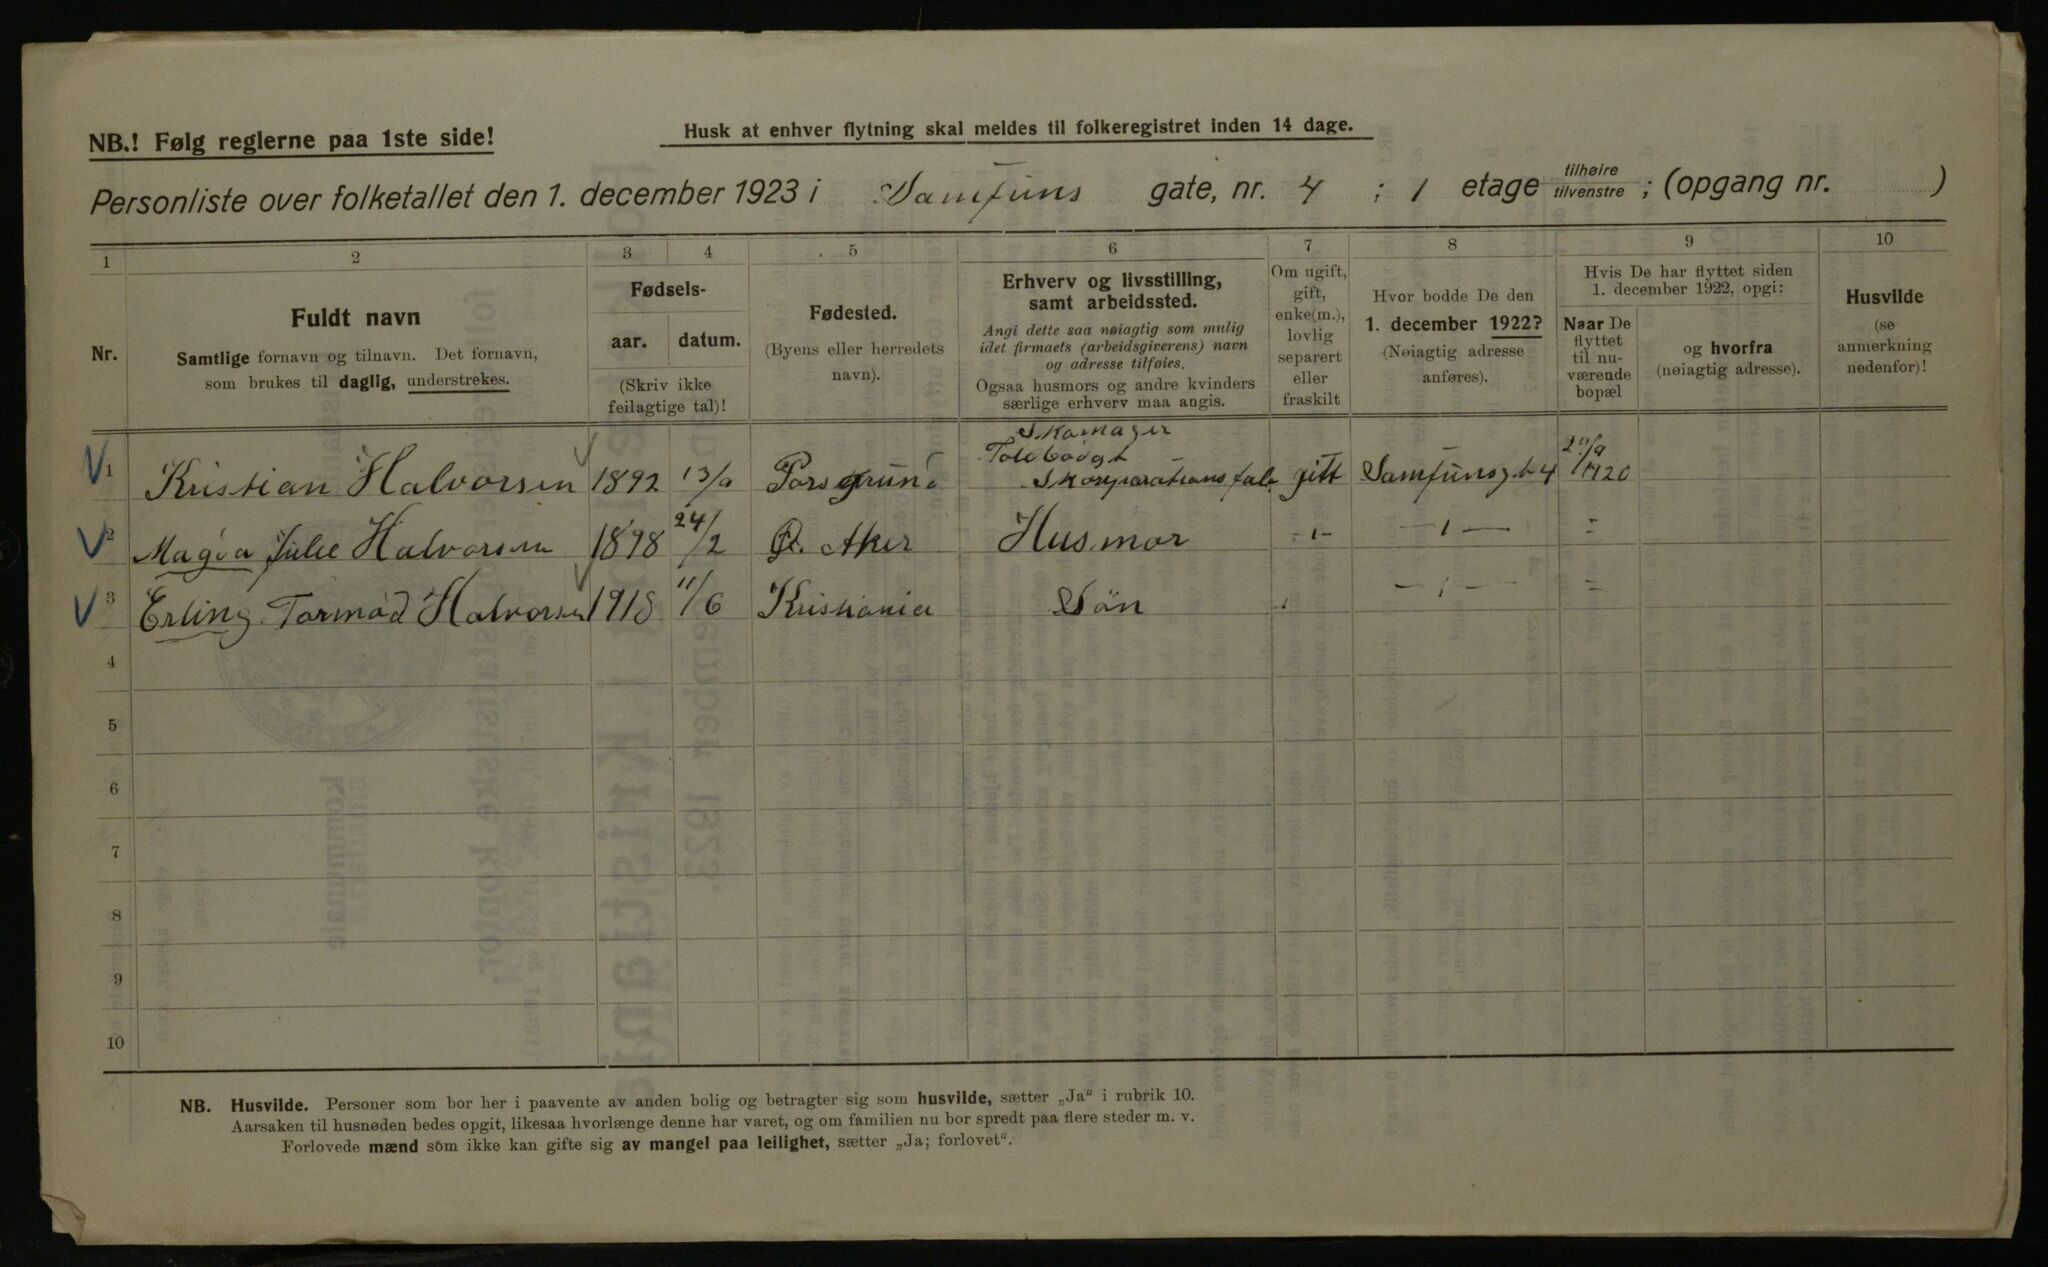 NB.! Følg reglerne paa 1ste side!
Husk at enhver flytning skal meldes til folkeregistret inden 14 dage.
Personliste over folketallet den 1. december 1923 i Samfuns gate, nr. 4 ; 1 etage tilhøire tilvenstre ; (opgang nr. )
1 2 3 4 5 6 7 8 9 10
Nr.
Fuldt navn
Samtlige fornavn og tilnavn. Det fornavn,
som brukes til daglig, understrekes.
Fødsels-
aar. datum.
(Skriv ikke
feilagtige tal)!
Fødested.
(Byens eller herredets
navn).
Erhverv og livsstilling,
samt arbeidssted.
Angi dette saa nøiagtig som mulig
idet firmaets (arbeidsgiverens) navn
og adresse tilføies.
Ogsaa husmors og andre kvinders
særlige erhverv maa angis.
Om ugift,
gift,
enke(m.),
lovlig
separert
eller
fraskilt
Hvor bodde De den
1. december 1922?
(Nøiagtig adresse
anføres).
Hvis De har flyttet siden
1. december 1922, opgi:
Naar De
flyttet
til nu-
værende
bopæl
og hvorfra
(nøiagtig adresse).
Husvilde
(se
anmerkning
nedenfor)!
Skomager
Tolbodgt
1 Kristian Halvorsen 1892 13/9 Porsgrund Skoreparationsfab gift Samfunsgt 4 20/9 1920
2 Magda Julie Halvorsen 1898 24/2 Ø. Aker Husmor -1- -1- =
3 Erling Tormod Halvorsen 1918 11/6 Kristiania Sön -1- =
4
5
6
7
8
9
10
NB. Husvilde. Personer som bor her i paavente av anden bolig og betragter sig som husvilde, sætter „Ja“ i rubrik 10.
Aarsaken til husnøden bedes opgit, likesaa hvorlænge denne har varet, og om familien nu bor spredt paa flere steder m. v.
Forlovede mænd som ikke kan gifte sig av mangel paa leilighet, sætter „Ja; forlovet“.